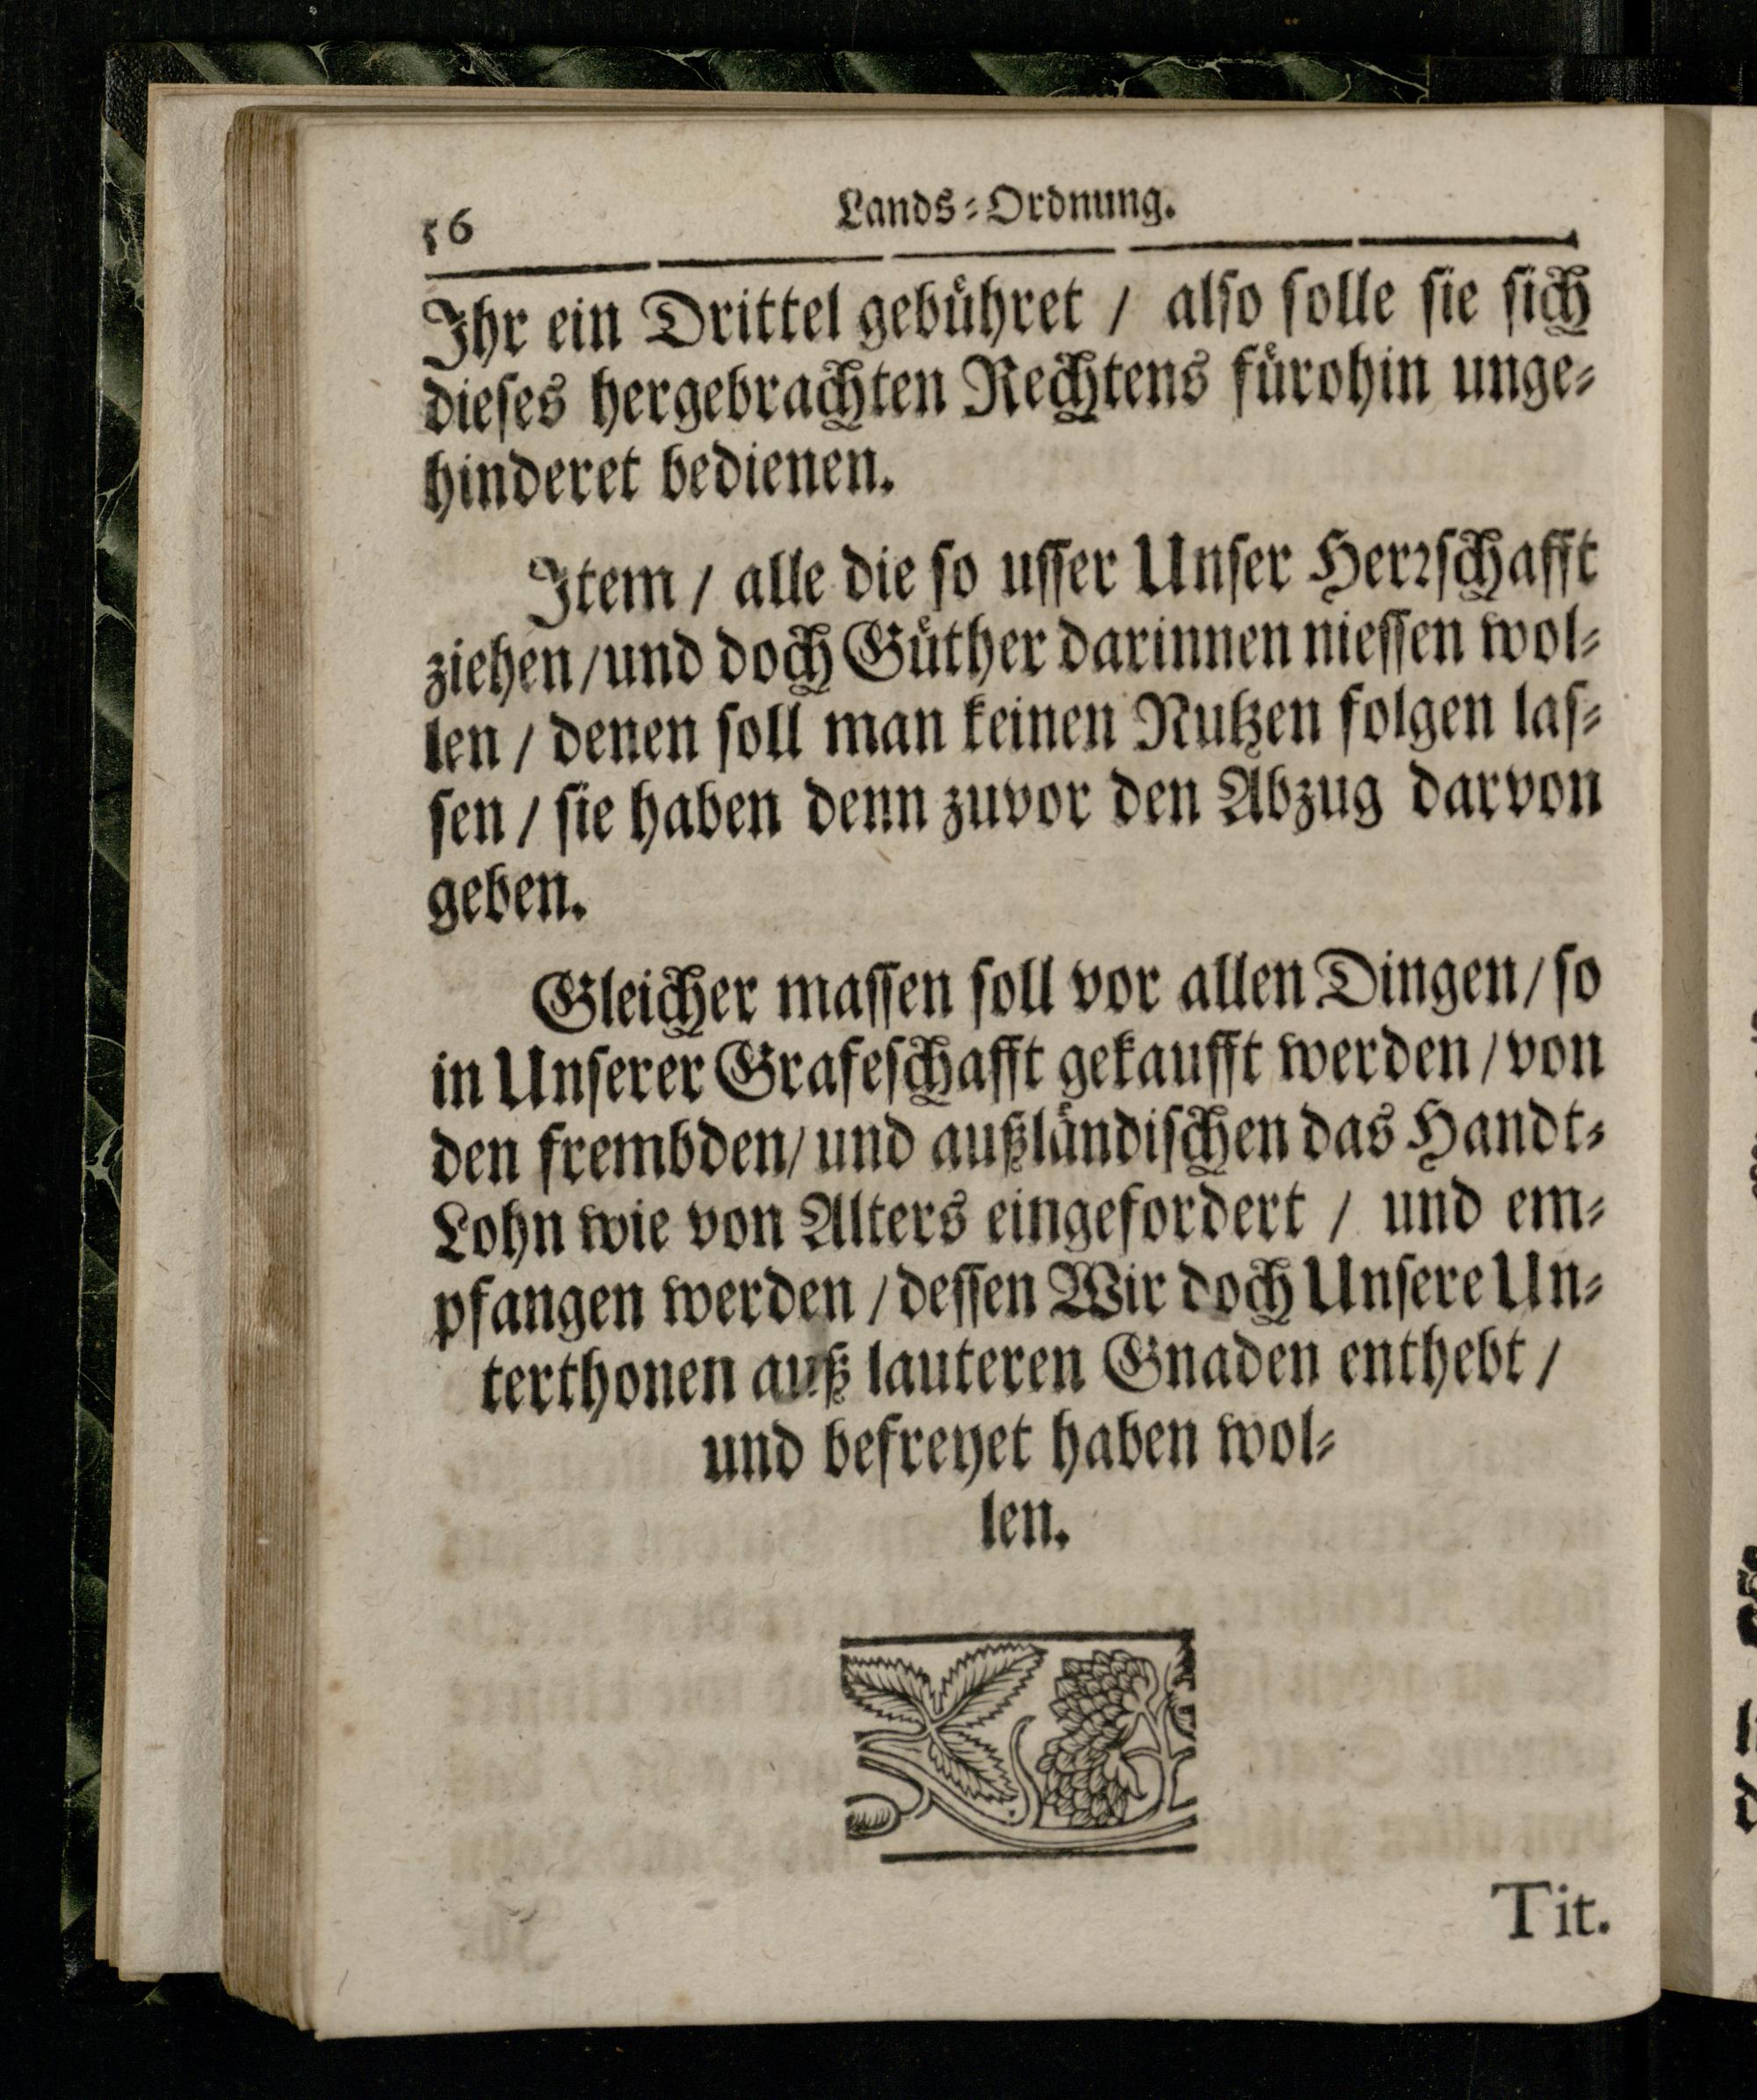 56
Lands-Ordnung.
Ihr ein Drittel gebůhret / also solle sie sich
dieses hergebrachten Rechtens fůrohin unge-
hinderet bedienen.
Item / alle die so usser Unser Herꝛschafft
ziehen / und doch Gůther darinnen niessen wol-
len / denen soll man keinen Nutzen folgen las-
sen / sie haben denn zuvor den Abzug darvon
geben.
Gleicher massen soll vor allen Dingen / so
in Unserer Grafeschafft gekaufft werden / von
den frembden / und außlåndischen das Handt-
Lohn wie von Alters eingefordert / und em-
pfangen werden / dessen Wir doch Unsere Un-
terthonen auß lauteren Gnaden enthebt /
und befreyet haben wol-
len.
Tit.